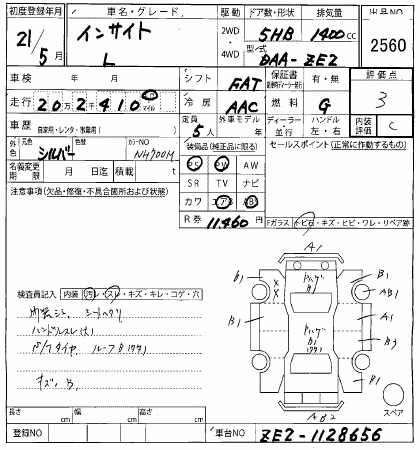 初度登録年月 車名・グレード 駆動 ドア数・形状 排気量 出品NO
21年 5月 インサイト L 2WD 4WD 5HB 1400cc 2560
型式 DAA-ZE2
車検 年 月 シフト FAT 保証書 有・無 評価点 3
走行 20万2千410 マイル 冷房 AAC 燃料 G
車歴 自家用・レンタ・事業用( ) 定員 5人 外車モデル 年 ディーラー・並行 ハンドル 左・右 内装評価 C
外色 元色 シルバー 色替 カラーNO NH700M 装備品(純正品に限る) セールスポイント(正常に作動するもの)
名義変更期限 月 日迄 積載 t PS PW AW
注意事項(欠品・修復・不具合箇所および状態) SR TV ナビ
カワ エアB ABS
R券 11,460円 Fガラス トビ石・キズ・ヒビ・ワレ・リペア跡
検査員記入 内装 汚レ・スレ・キズ・キレ・コゲ・穴
内装シミ
ハンドルスレ
ルーフB
キズ、B
A1
B1 B1
AB1
B1 A1
B3
B1
AB2
スペア
長さ cm 幅 cm 高さ cm
登録NO 車台NO ZE2-1128656